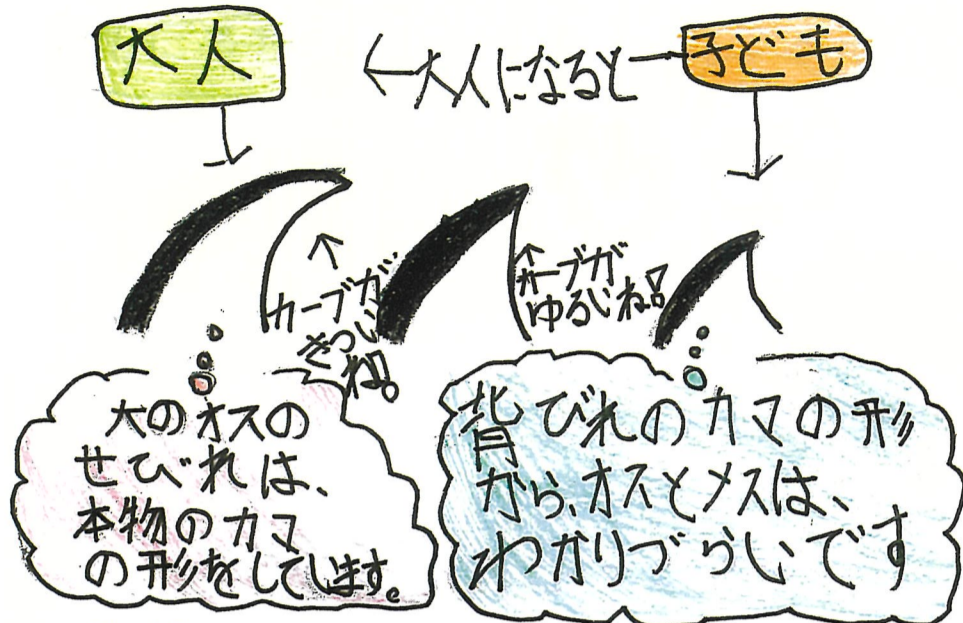 大人
←大人になると→
子ども
↑
カーブが
きつい
ね!
↑
カーブが
ゆるいね!
大のオスの
せびれは、
本物のカマ
の形をしています。
背びれのカマの形
から、オスとメスは、
わかりづらいです